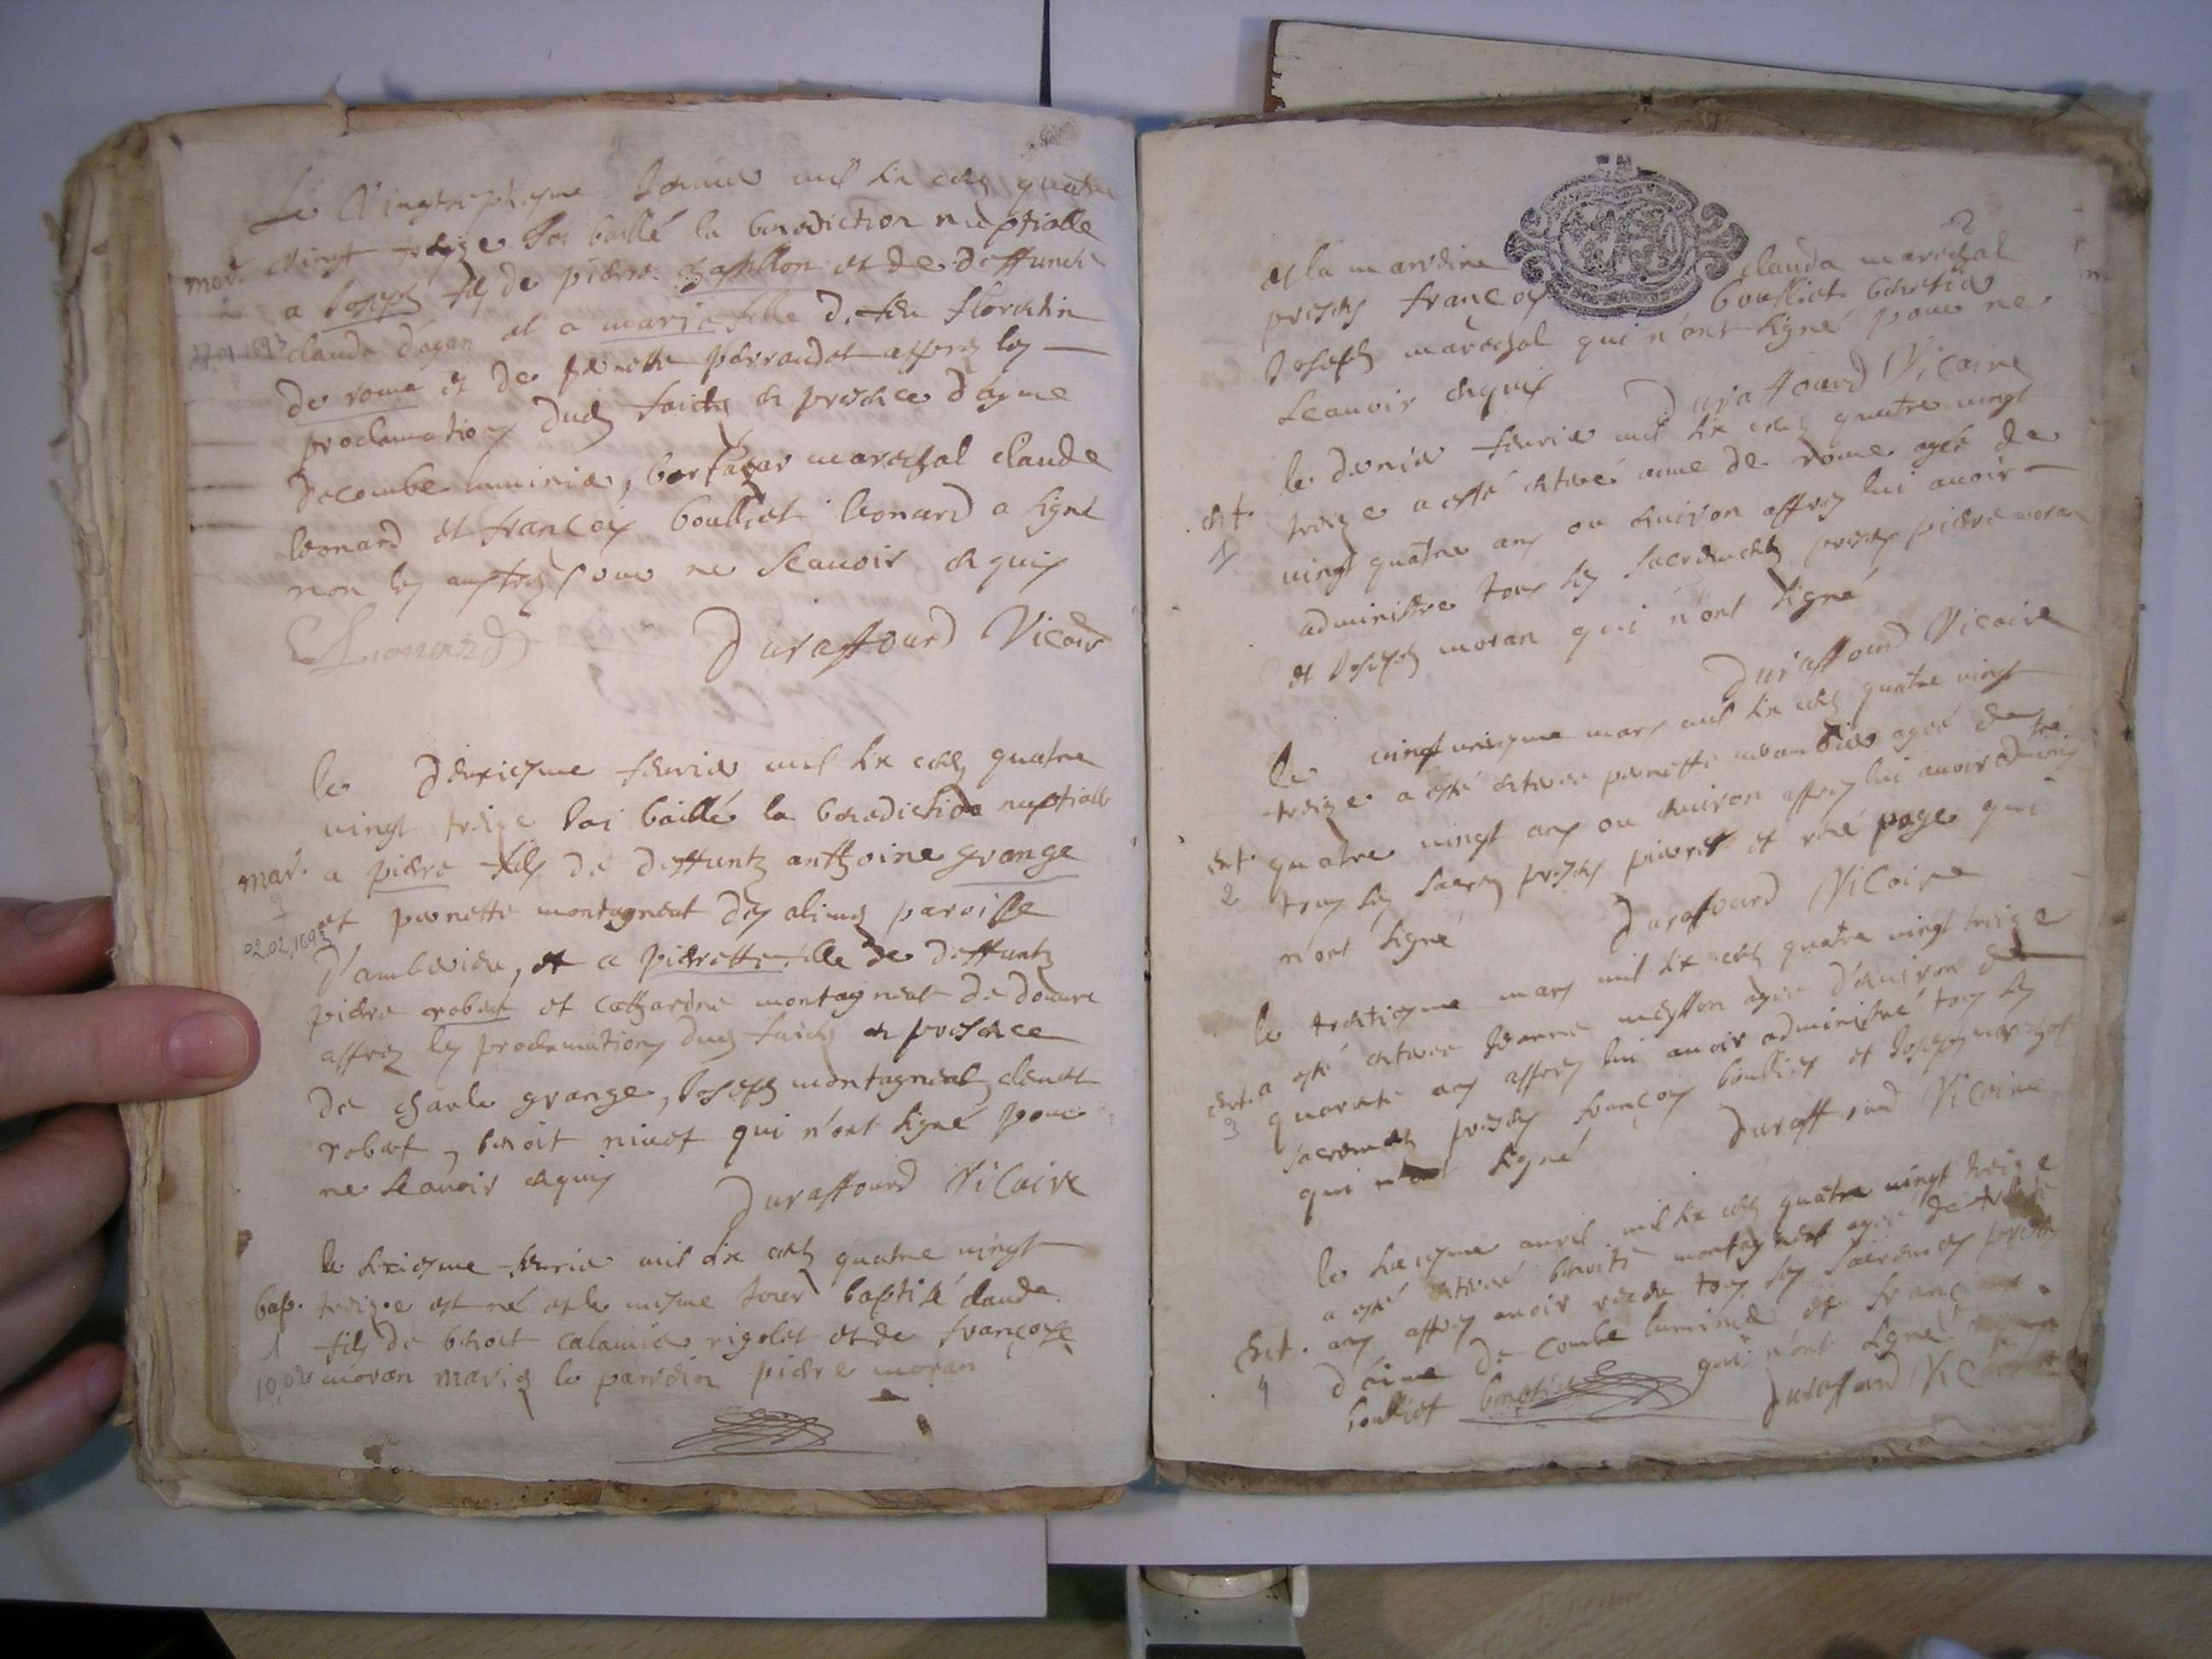 Le vingtseptiesme Janvier mil six cents quatre
vingt treize Jai baillé la benediction nuptialle
mar. a Joseph fils de pierre chapillon et de deffuncte
2
27.01.1693 clauda dagan et a marie fille d. feu florentin
de rome et de pernette perraudet appres les
proclamations dues faictes en presence d'ayme
decombe luminier, bartazar marechal claude
leonard et françois boulliet leonard a signé
non les austres pour ne scavoir enquis
CLeonard Duraffourd Vicaire
le deuxiesme febvrier mil six cents quatre
vingt treize Jai baillé la benediction nuptialle
mar. a pierre fils de deffuntz anthoine grange
3
et pernette montagneat des alimes paroisse
02.02.1693
d'amberieu, et a pierrette fille de deffuntz
pierre robert et catharine montagneat de douvre
appres les proclamations dues faictes en presence
de charle grange, Joseph montagneat, clenet
robert, benoit nivet qui n'ont signé pour
ne scavoir enquis
Duraffourd Vicaire
le sixiesme febvrier mil six cents quatre vingt
bap. treize est né et le mesme Jour baptisé claude
1 fils de benoit calamier rigolet et de françoise
10,02 moran mariez le parrein pierre moran
2
et la marrine clauda marechal
presents françois boulliet benetier
Joseph marechal qui n'ont signé pour ne
scavoir enquis Duraffourd Vicaire
le dernier febvrier mil six cents quatre vingt
ent. treize a esté enterré anne de rome agée de
1 vingt quatre ans ou environ appres lui avoir
administre tous les sacrements presents pierre moran
et Joseph moran qui n'ont signé
Duraffourd Vicaire
le vingt uniesme mars mil six cents quatre vingt
treize a esté enterree pernette agée de
ent. quatre vingt ans ou environ appres lui avoir administré
2 tous les sacrem presents pierre et rené page qui
n'ont signé Duraffourd Vicaire
le trentiesme mars mil six cents quatre vingt treize
a esté enterree Jeanne agée d'environ
ent. quarante ans appres lui avoir administré tous les
3 sacrements presents françois boulliet et Joseph marechal
qui n'ont signé Duraffourd Vicaire
le avril mil six cents quatre vingt treize
a esté enterré benoite montagneat agée de trente
ent. ans appres avoir receu tous les sacrements presents
4 d'aime de combe luminier et françois
boulliet benetier qui n'ont signé
Duraffourd Vicaire